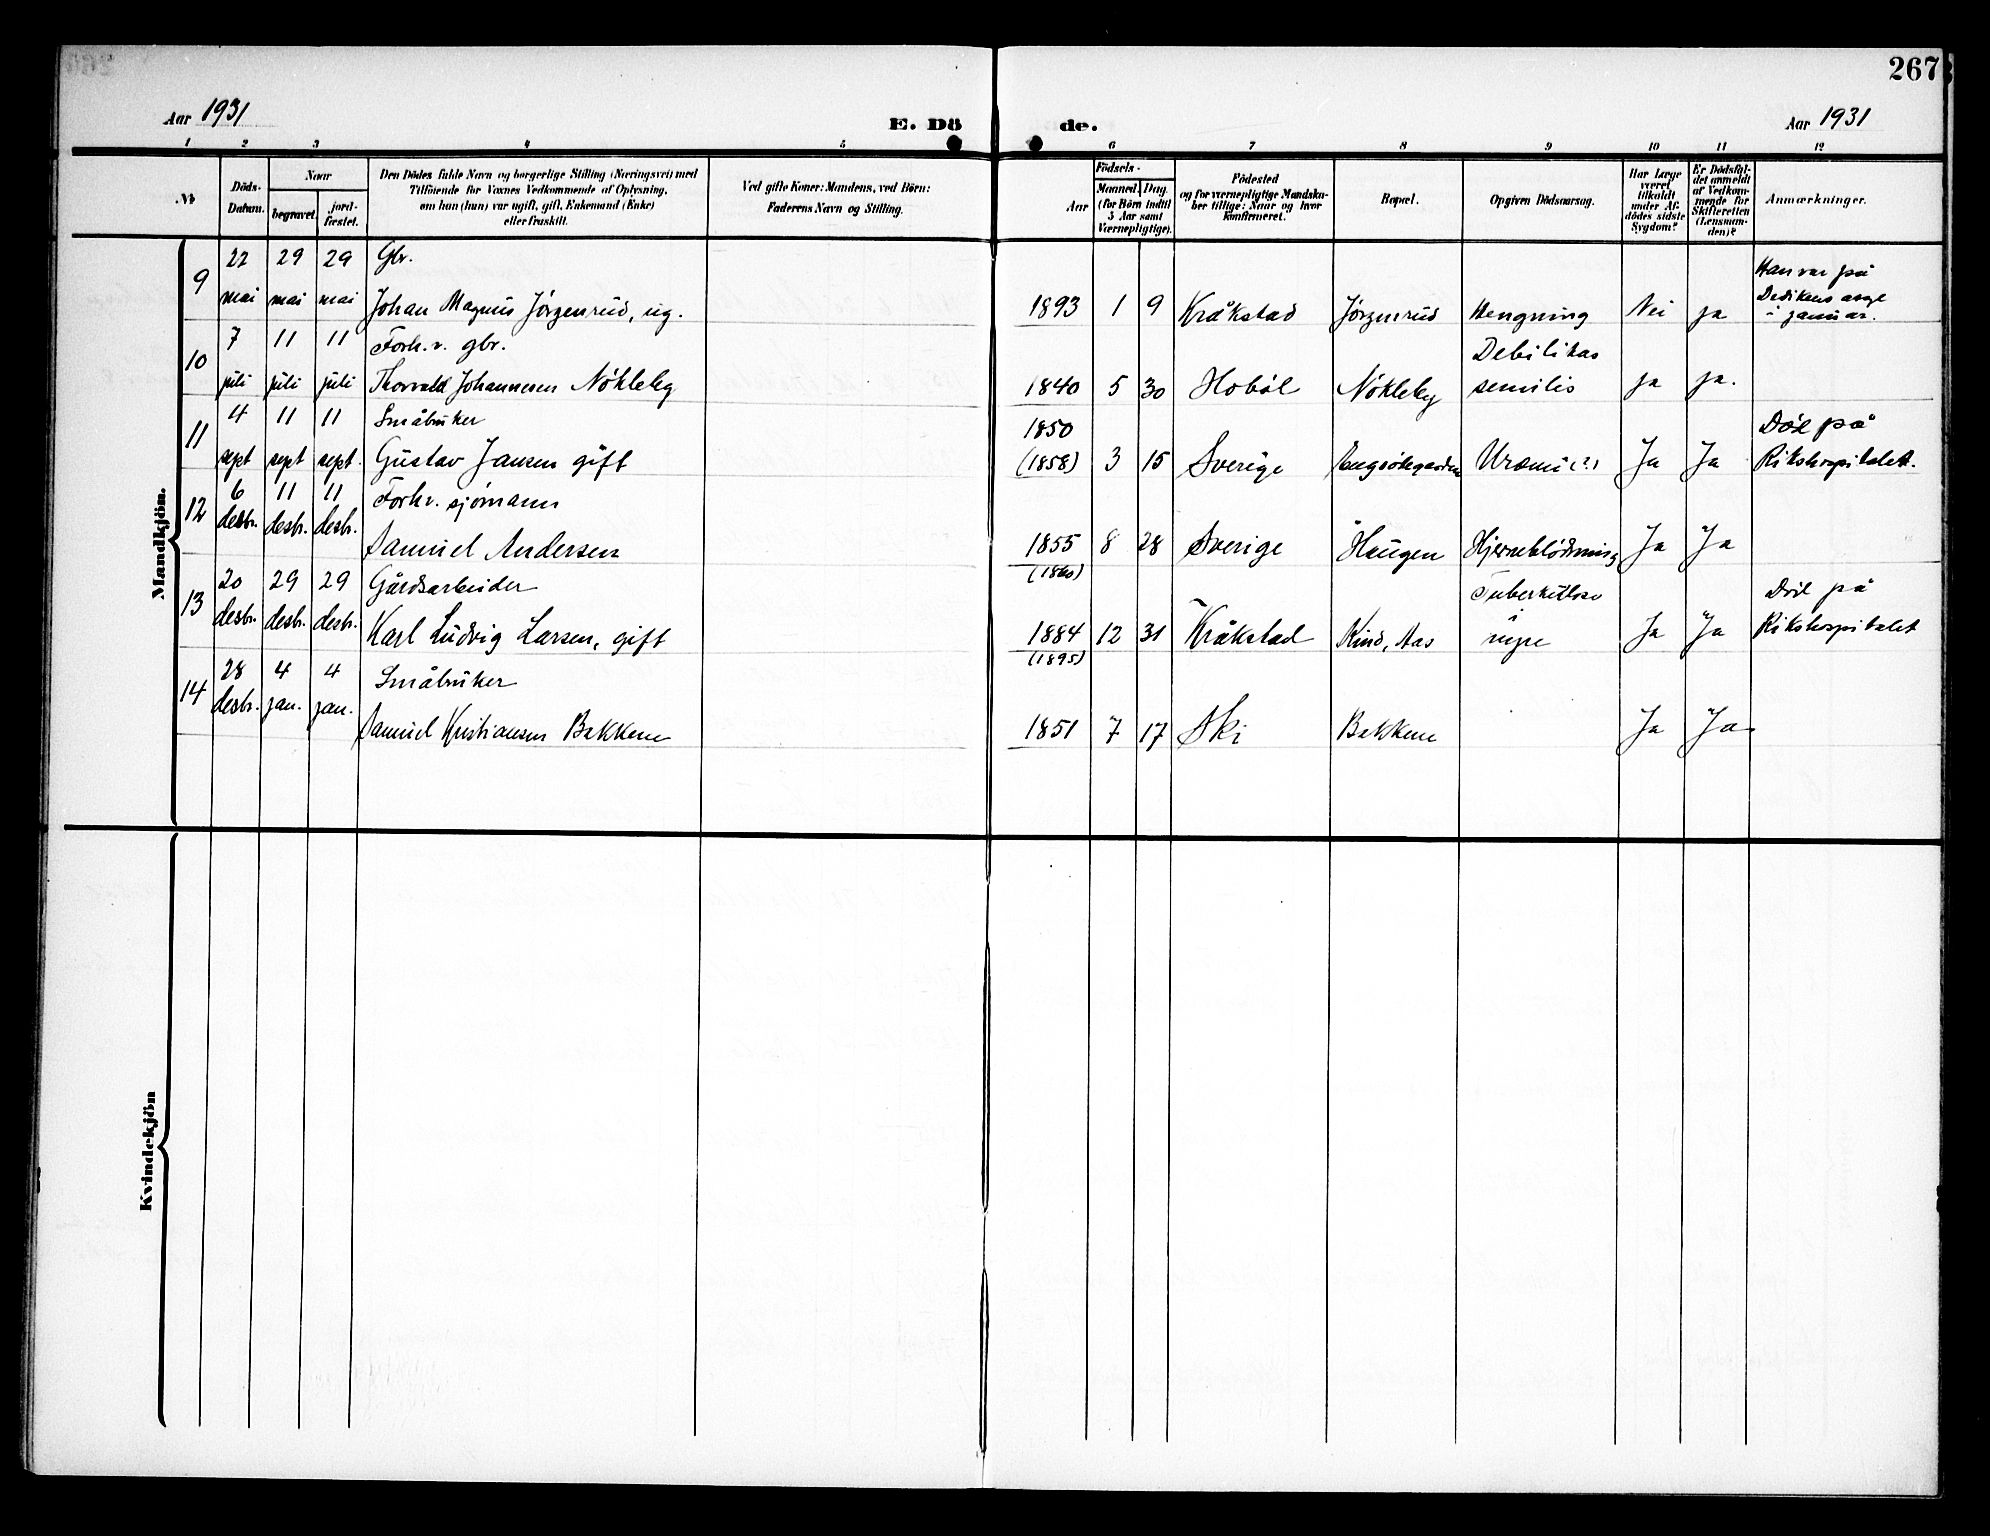 267
Aar 1931
E. Dö
de.
Aar 1931
1 2 3 4 5 6 7 8 9 10 11 12
№
Döds-
Datum.
Naar
begravet.
jord-
fæstet.
Den Dödes fulde Navn og borgerlige Stilling (Næringsvei) med
Tilföiende for Voxnes Vedkommende af Oplysning,
om han (hun) var ugift, gift, Enkemand (Enke)
eller fraskilt.
Ved gifte Koner: Mandens, ved Börn:
Faderens Navn og Stilling.
Födsels-
Aar
Maaned. Dag.
(for Börn indtil
3 Aar samt
Værnepligtige).
Födested
og for værnepligtige Mandska-
ber tillige: Naar og hvor
konfirmeret.
Bopæl.
Opgiven Dödsaarsag.
Har Læge
været
tilkaldt
under Af-
dödes sidste
Sygdom?
Er Dödsfal-
det anmeldt
af Vedkom-
mende for
Skifteretten
(Lensman-
den)?
Anmærkninger.
Mandkjön.
9 22 mai 29 mai 29 mai Gbr.
Johan Magnus Jörgenrud, ug. 1893 1 9 Kråkstad Jörgenrud Hengning Nei ja
Han var på
Dedikens asyl
i januar.
10 7 juli 11 juli 11 juli Forh.v. gbr.
Thorvald Johannesen Nökleby 1840 5 30 Hoböl Nökleby
Debilitas
senilis ja ja.
11 4 sept 11 sept 11 sept. Småbruker
Gustav Jansen gift 1850
(1858) 3 15 Sverige Uræmi (?) Ja Ja
Död på
Rikshospitalet.
12 6 desbr. 11 desbr. 11 desbr. Forhv. sjömann
Samuel Andersen 1855 8 28 Sverige Haugen Hjerneblödning Ja Ja
(1860)
13 20 desbr. 29 desbr. 29 desbr. Gårdsarbeider
Karl Ludvig Larsen, gift 1884 12 31 Kråkstad Kind, Aas
Tuberkulose
i
nyre Ja Ja
Död på
Rikshospitalet
(1895)
14 28 desbr. 4 jan. 4 jan. Småbruker
Samuel Kristiansen Bakkene 1851 7 17 Ski Bakkene Ja Ja
Kvindekjön